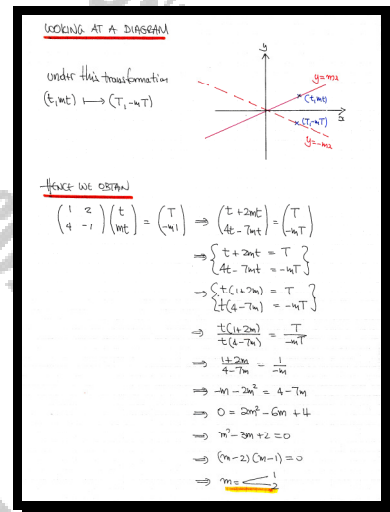 LOOKING AT A DIAGRAM
under this transformation
(t, mt) ⟼ (T, -mT)
y
y=mx
(t, mt)
x
(T, -mT)
y=-mx
HENCE WE OBTAIN
(1 2; 4 -1)(t; mt) = (T; -mT) ⇒ (t + 2mt; 4t - 7mt) = (T; -mT)
⇒ { t + 2mt = T
4t - 7mt = -mT }
⇒ { t(1+2m) = T
t(4-7m) = -mT }
⇒ t(1+2m)/t(4-7m) = T/-mT
⇒ 1+2m/4-7m = 1/-m
⇒ -m - 2m² = 4 - 7m
⇒ 0 = 2m² - 6m + 4
⇒ m² - 3m + 2 = 0
⇒ (m-2)(m-1) = 0
⇒ m = < 1
2